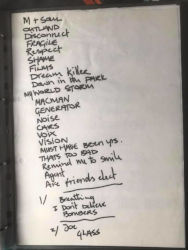 M + Soul
OUTLAND
Disconnect
FRAGILE
Respect
SHAME
FILMS
Dream Killer
Down in the PARK
MY WORLD STORM
MACMAN
GENERATOR
NOISE
CARS
VOIX
VISION
MUST HAVE BEEN YRS.
THATS TOO BAD
Remind me to smile
Agent
Are friends elect
1/ Breathing
I Don't believe
Bombers
2/ Joe
GLASS